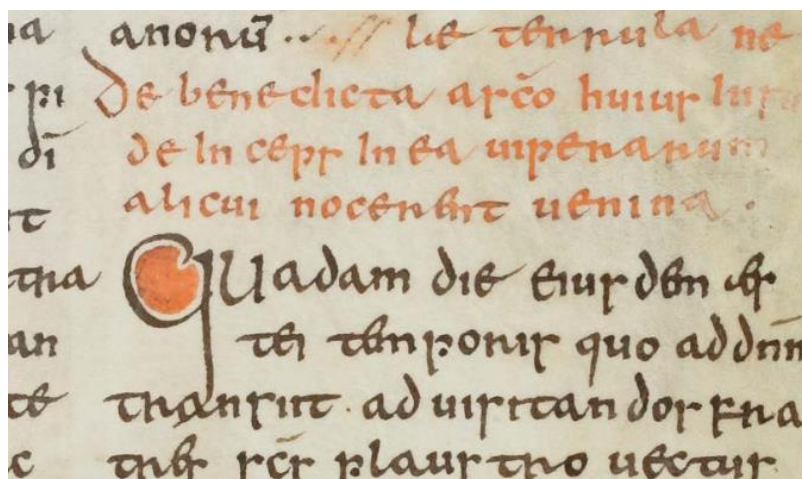 pi
dī
tra
an
te
c
annorū .. lae terrula ne
De benedicta a sc̄o huius insu
deinceps in ea uiperarum
alicui nocerent uenina .
Quadam die eiusdem aes
tei temporis quo ad dn̄m
transiit . ad uisitandos fra
tres sc̄s plaustro uectus